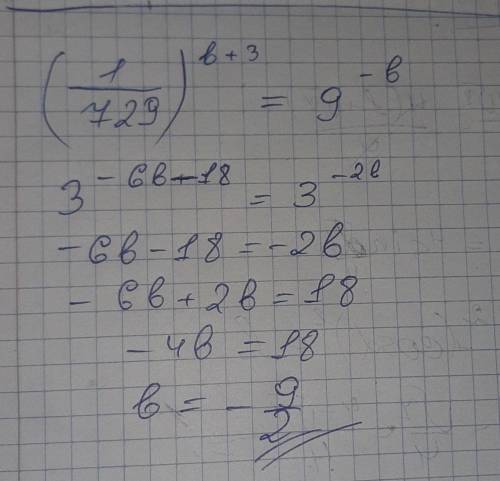 (1/729)^(b+3) = 9^(-b)
3^(-6b-18) = 3^(-2b)
-6b-18=-2b
-6b+2b=18
-4b=18
b=-9/2